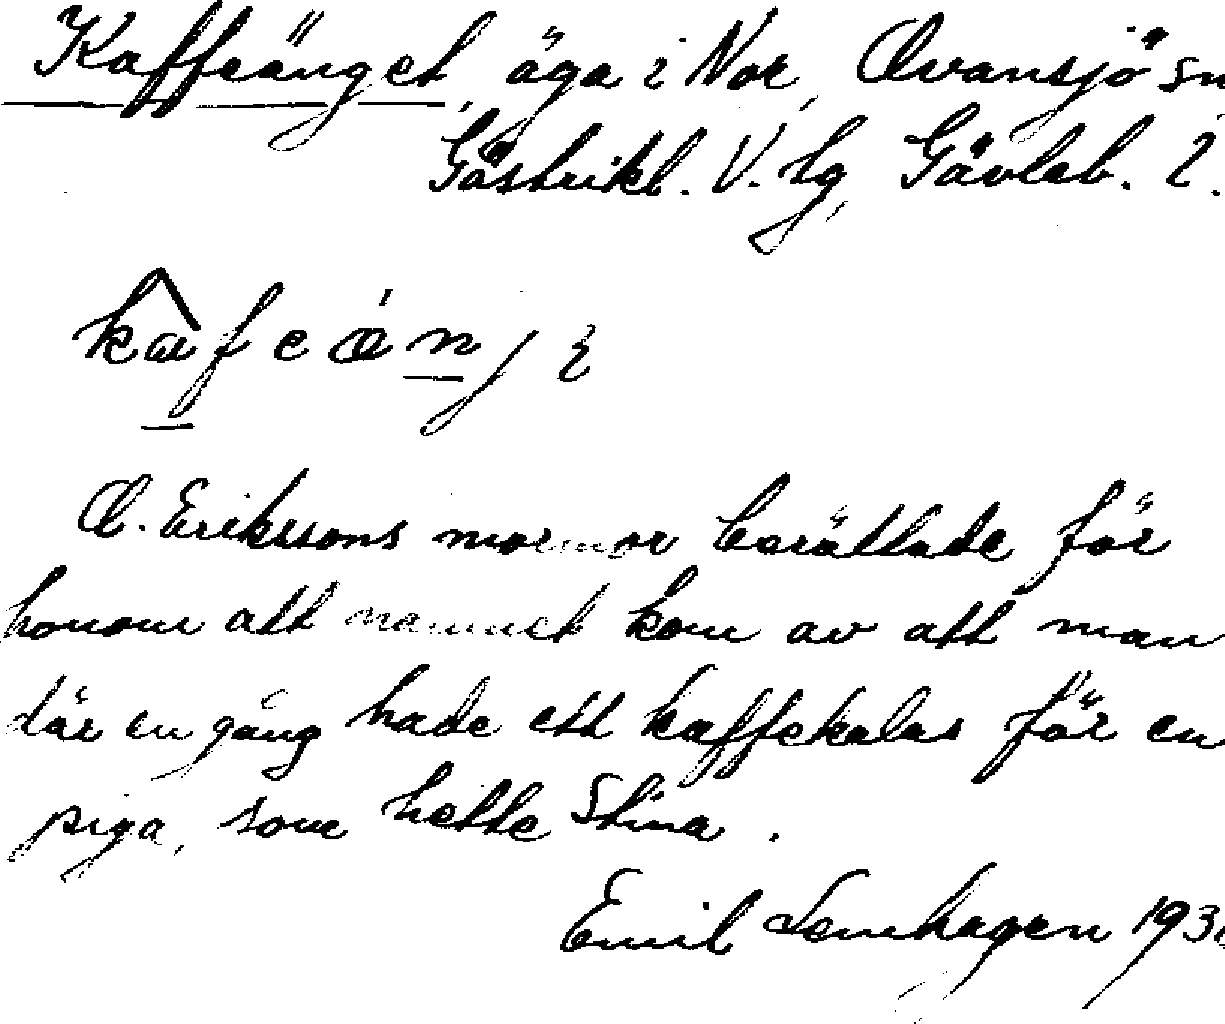 Kaffeänget, äga i Nor, Ovansjö sn
Gästrikl. V. tg, Gävleb. l.
kafeánji
O. Erikssons mormor berättade för
honom att namnet kom av att man
där en gång hade ett kaffekalas för en
piga, som hette Stina.
Emil Lenhagen